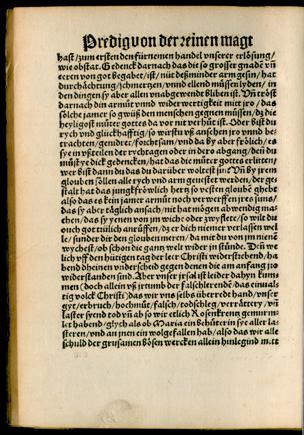 Predig von der reinen magt
hast/zum ersten den fürnemen handel vnserer erlösung/
wie obstat. Gedenck darnach das die so grosser gnadē vñ
eeren von got begabet/ist/nüt destminder arm gesin/hat
durchächtung/schmertzen/vnnd ellend müssen lyden/in
den dingen sy aber allen vnabgewendt bliben ist. Vñ tröst
darnach din armůt vnnd widerwertigkeit mitt jro/das
solche jamer so gwüß den menschen gegnen müssen/dz die
heyligost můter gottes da vor nit verhüt ist. Oder bist du
rych vnd glückhafftig/so wirstu vß anschen jro vnnd be-
trachten/genieret/forchtsam/vnd da by aber frölich/es
sye in wytteilen der rychtagen oder in dero abgang/den du
můst ye dick gedencken/hat das die můter gottes erlitten/
wer bist dann du das du darüber woltest sin? Vñ by jrem
glouben söllen alle rych vnd arm geuestet werden/der ge-
stalt hat das jungkfröwlich hertz so vesten gloube ghebt
also das es kein jamer armůt noch verwerffen jres suns/
das sy aber täglich ansach/nit hat mögen abwendig ma-
chen/das sy yenen von jm wiche oder zwyflete/so wilt du
ouch got trülich anrůffen/dz er dich niemer verlassen wel
le/sunder dir den glouben meren/da mit du von jm nienē
wychest/ob schon die gantz welt wider in stünde. Diñ we
lich vff den hütigen tag der leer Christi widerstrebend/ha
bend dheinen vnderscheid gegen denen die am anfang jro
widerstanden sind. Aber vnser jrsal ist leider dahyn kum
men (doch allein vß jrtumb der falschlerenden) das einual
tig volck Christi/das wir vns selbs überredt hand/vnser
gyt/eebruch/hochmůt/falsch/todschleg/verrätery/vñ
laster syend tod vñ ab so wir etlich Rosenkrentz gemurm-
let habend/glych als ob Maria ein behüterin sye aller la-
steren/vnd an jnen ein wolgefallen hab/also das wir alle
schuld der grusamen bösen wercken allein hinlegind mitt